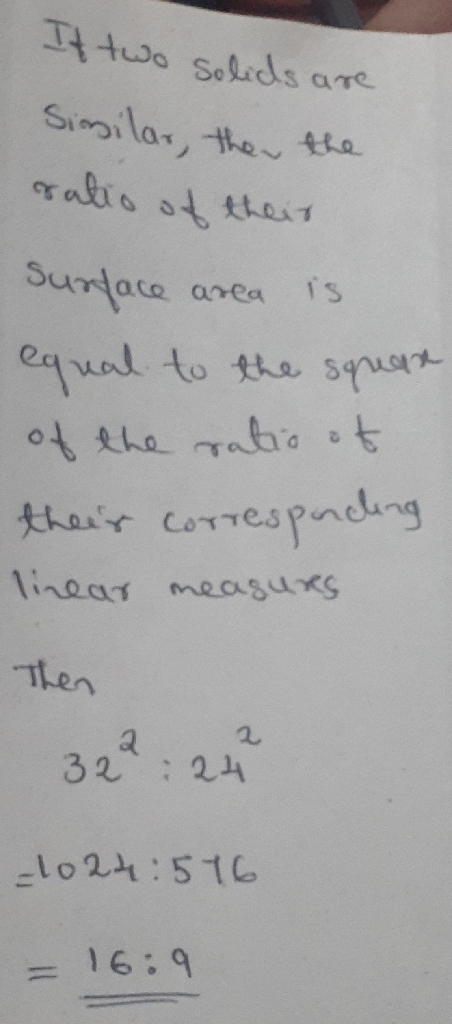 If two solids are
Similar, then the
ratio of their
Surface area is
equal to the square
of the ratio of
their corresponding
linear measures
Then
32² : 24²
=1024:576
= 16:9